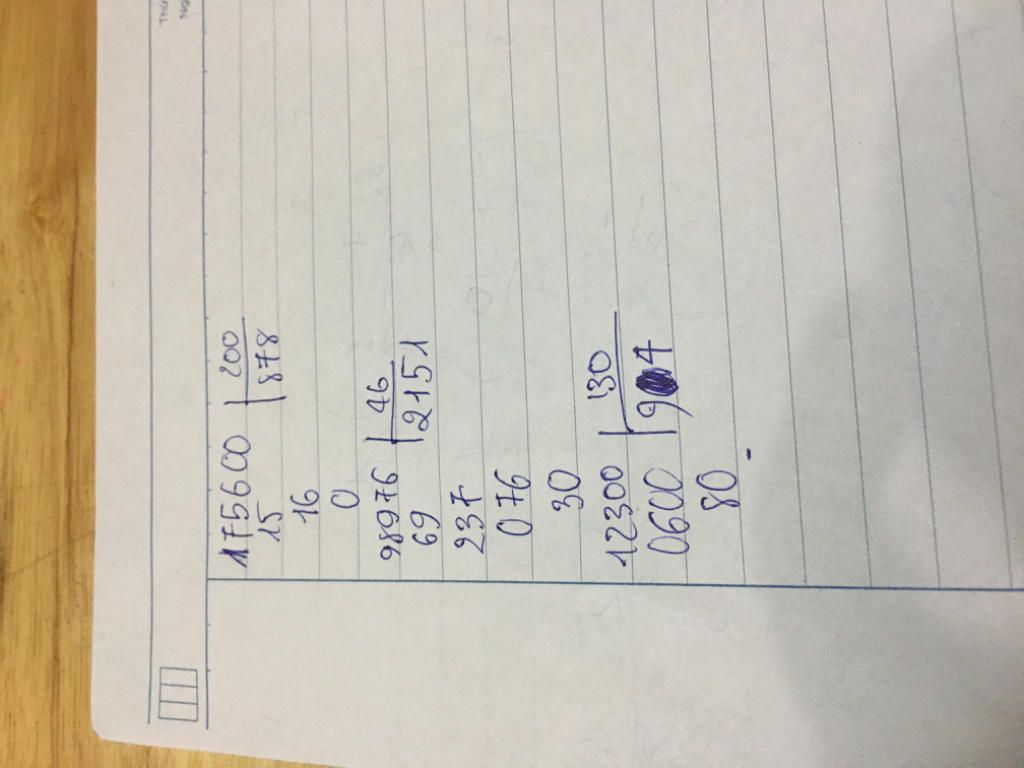 175600 200
15 878
16
0
98976 46
69 2151
237
076
30
12300 130
0600 94
80